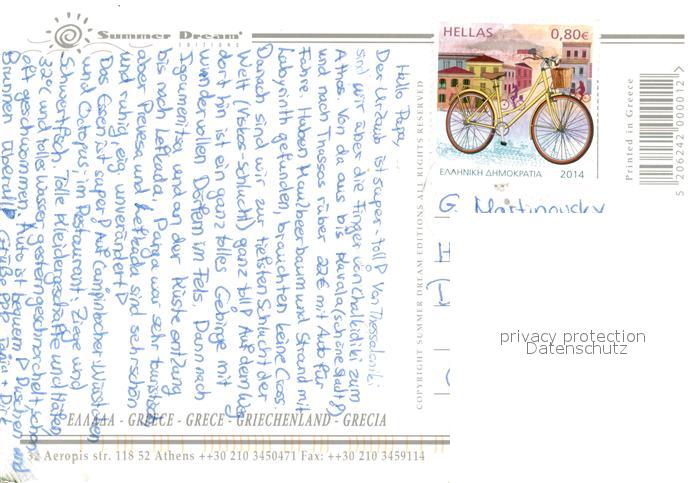 Summer Dream
EDITIONS
Hallo Papy
Der Urlaub ist super-toll! Von Thessaloniki
sind wir über die Finger von Chalkidiki zum
Athos. Von da aus bis Kavala (schöne Stadt!)
und nach Thassos rüber 22€ mit Auto für
Fähre. Haben Maulbeerbaum und Strand mit
Labyrinth gefunden, brauchten keine
Danach sind wir zur tiefsten Schlucht der
Welt (Vikos-Schlucht) ganz toll! Auf dem Weg
dorthin ist ein ganz tolles Gebirge mit
wundervollen Dörfern im Fels. Dann nach
Igoumenitsa und an der Küste entlang
bis nach Lefkada. Parga war sehr touristisch
aber Preveza und Lefkada sind sehr schön
und ruhig, ewig unverändert!
Das Essen ist super! Auf Campingkocher Würstchen
und Octopus; im Restaurant: Ziege und
Schwertfisch. Tolle Kleidergeschäfte und Häfen
32°C und tolles Wasser, gestern geschnorchelt, schon
oft geschwommen. Auto ist bequem! Duschen und
Brunnen überall! Grüße + Dirk
COPYRIGHT SUMMER DREAM EDITIONS ALL RIGHTS RESERVED
HELLAS 0,80€
ΕΛΛΗΝΙΚΗ ΔΗΜΟΚΡΑΤΙΑ 2014
Printed in Greece
5 206242 000012 >
G. Martinovsky
privacy protection
Datenschutz
ΕΛΛΑΔΑ - GREECE - GRECE - GRIECHENLAND - GRECIA
32 Aeropis str. 118 52 Athens ++30 210 3450471 Fax: ++30 210 3459114